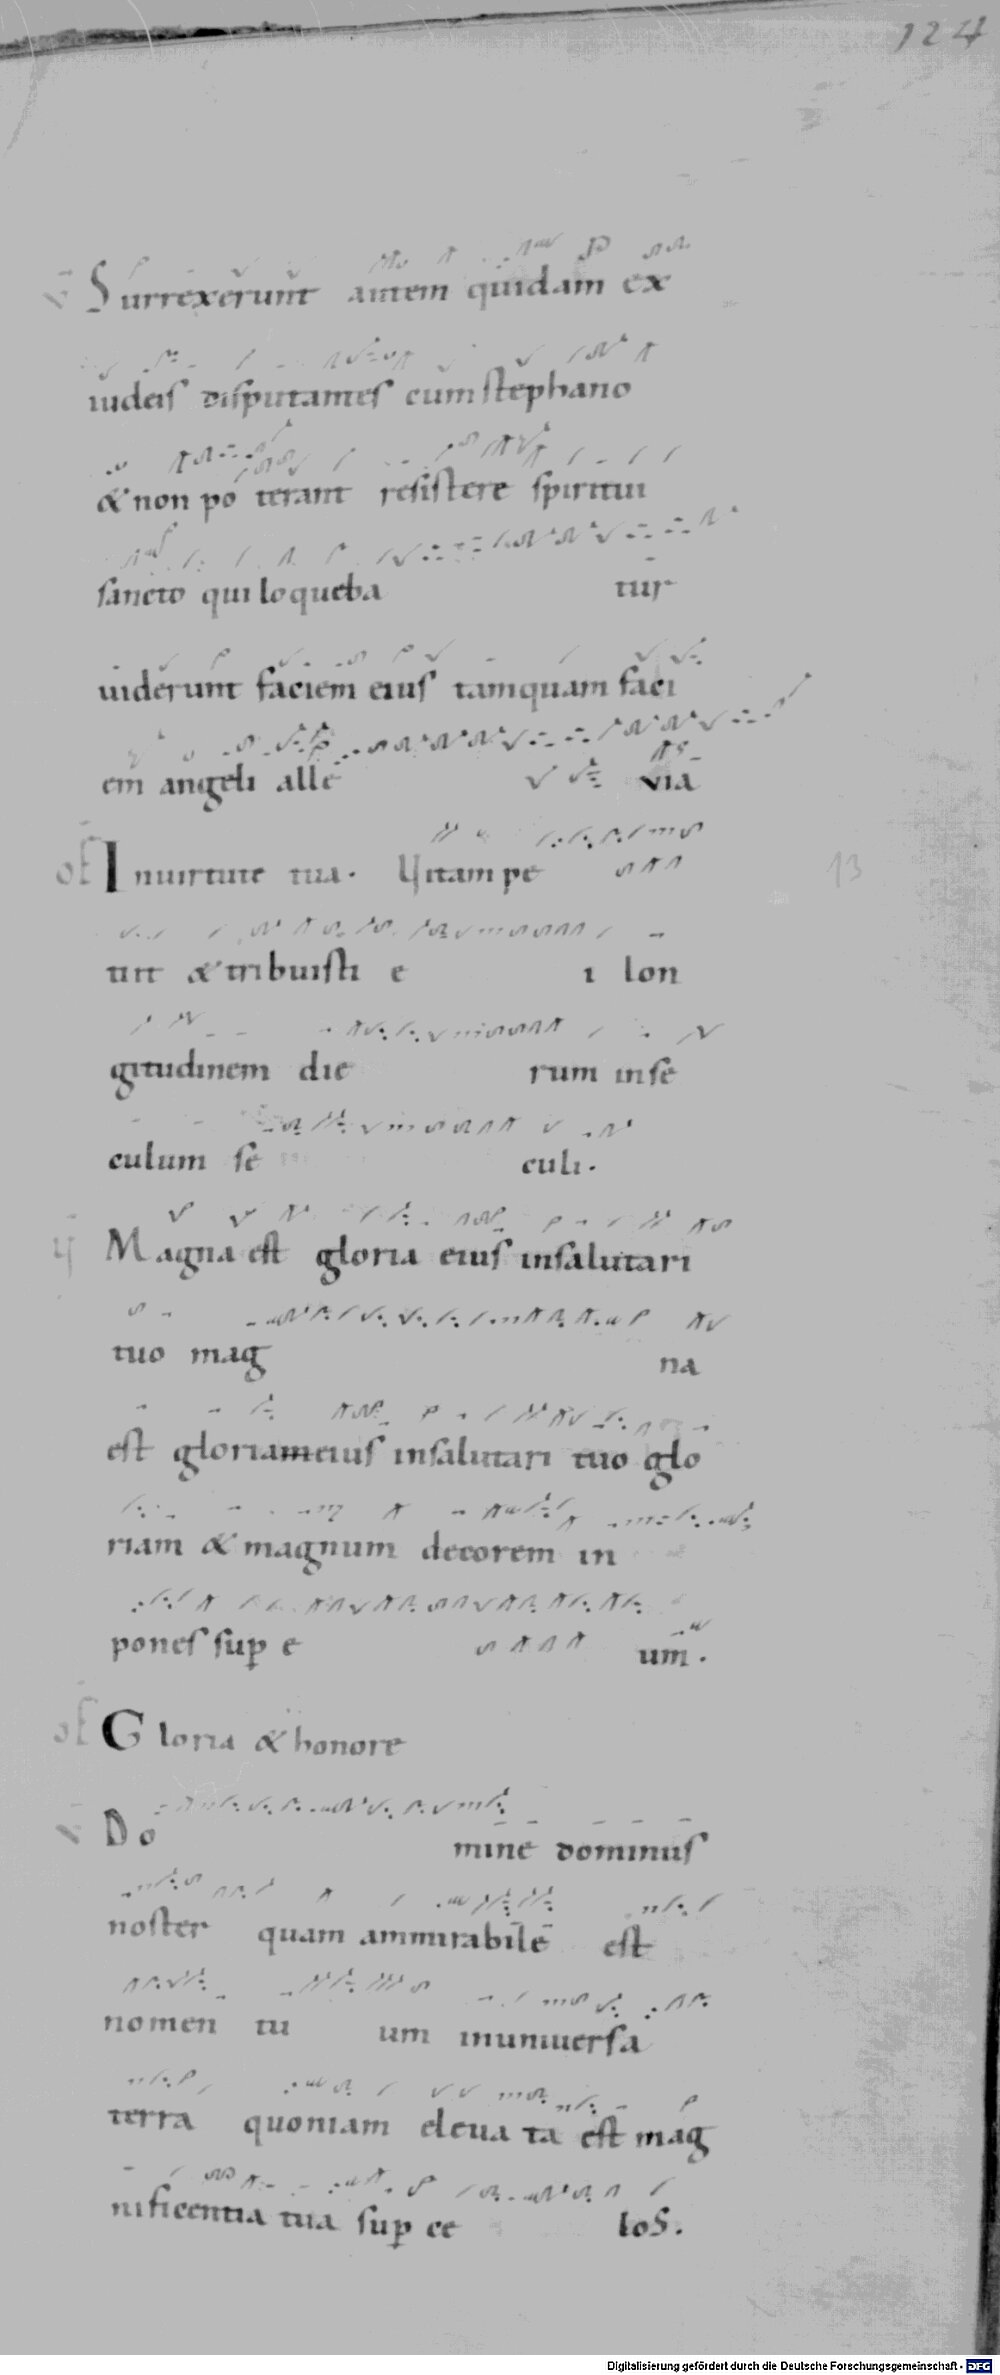 124
V Surrexerunt autem quidam ex
iudeis disputantes cum stephano
& non po terant resistere spiritui
sancto qui loqueba tur
uiderunt faciem eius tamquam faci
em angeli alle via
OF In uirtute tua. V Vitam pe
13
tiit & tribuisti e i lon
gitudinem die rum in se
culum se culi.
V Magna est gloria eius in salutari
tuo mag na
est gloriam eius in salutari tuo glo
riam & magnum decorem in
pones sup e um.
OF Gloria & honore
V Do mine dominus
noster quam ammirabile est
nomen tu um in uniuersa
terra quoniam eleua ta est mag
nificentia tua sup ce los.
Digitalisierung gefördert durch die Deutsche Forschungsgemeinschaft - DFG